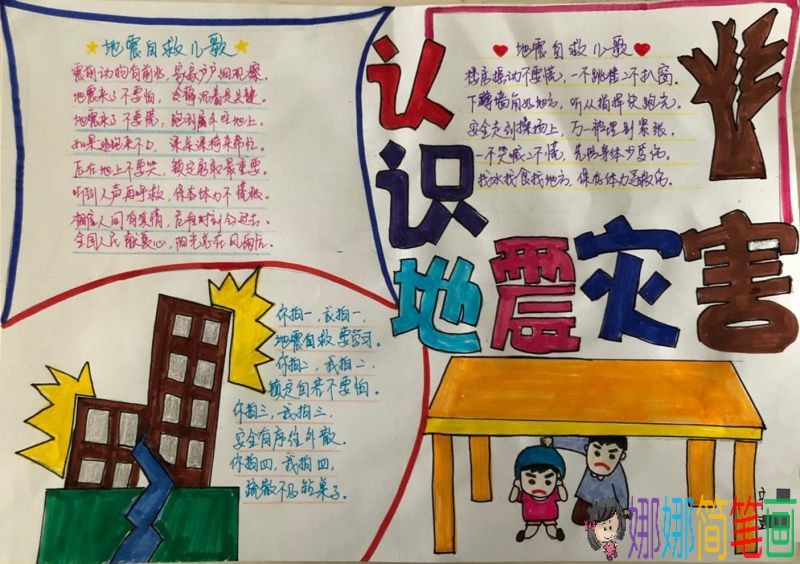 地震自救儿歌
震前动物有前兆，家家户户细观察。
地震来了不要怕，冷静沉着是关键。
地震来了不要慌，跑到屋外空地上。
如果跑来不及，桌底
压在地上不要哭，镇定
听到人声再呼救，保存体力不
相信人间有爱情，危难时刻会过去。
全国人民献爱心，阳光总在风雨后。
地震自救儿歌
楼房摇动不要慌，一不跳楼二不扒窗。
下蹲墙角好地方，听从指挥快跑光。
安全走到操场上，万一被埋别紧张。
一不哭喊二不慌，先防身体少受伤。
找水找食找地方，保存体力
认识
地震灾害
你拍一，我拍一，
地震自救要学习。
你拍二，我拍二，
镇定自若不要怕。
你拍三，我拍三，
安全有序往外散。
你拍四，我拍四，
疏散不及钻桌子。
娜娜简笔画